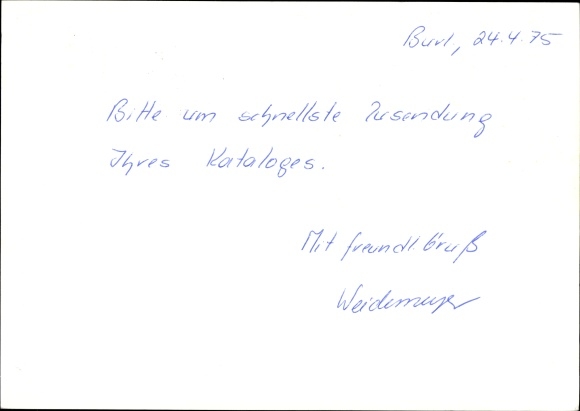 Burl., 24.4.75
Bitte um schnellste Zusendung
Ihres Kataloges.
Mit freundl. Gruß
Weidemeyer